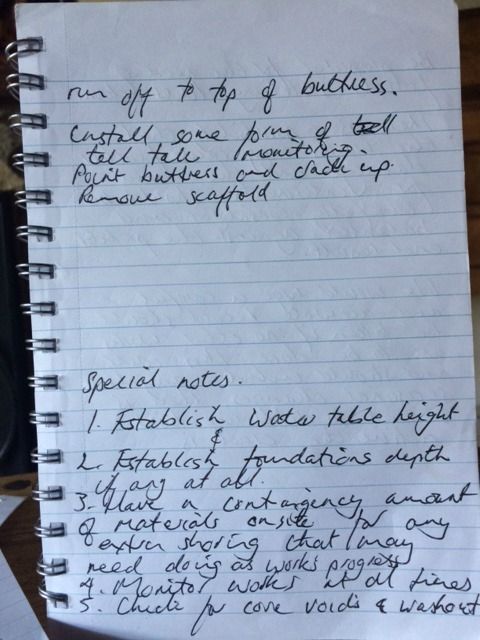 run off to top of buttress.
Install some form of tell
tell tale monitoring.
Point buttress and crack up.
Remove scaffold
Special notes.
1. Establish water table height
&
2. Establish foundations depth
if any at all.
3. Have a contingency amount
of materials onsite for any
extra shoring that may
need doing as works progress
4. Monitor works at all times
5. Check for core voids & washout